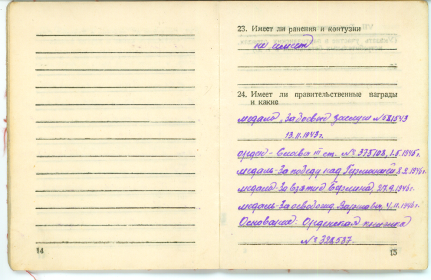 23. Имеет ли ранения и контузии
не имеет
24. Имеет ли правительственные награды
и какие
медаль „За боевые заслуги" №
13.11.1943г.
орден - Слава III ст. № 375108, 1.5.1945г.
медаль - За победу над Германией
медаль За взятие Берлина
медаль - За освобожд. Варшавы
Основание - Орденская книжка
№ 328537.
14
15